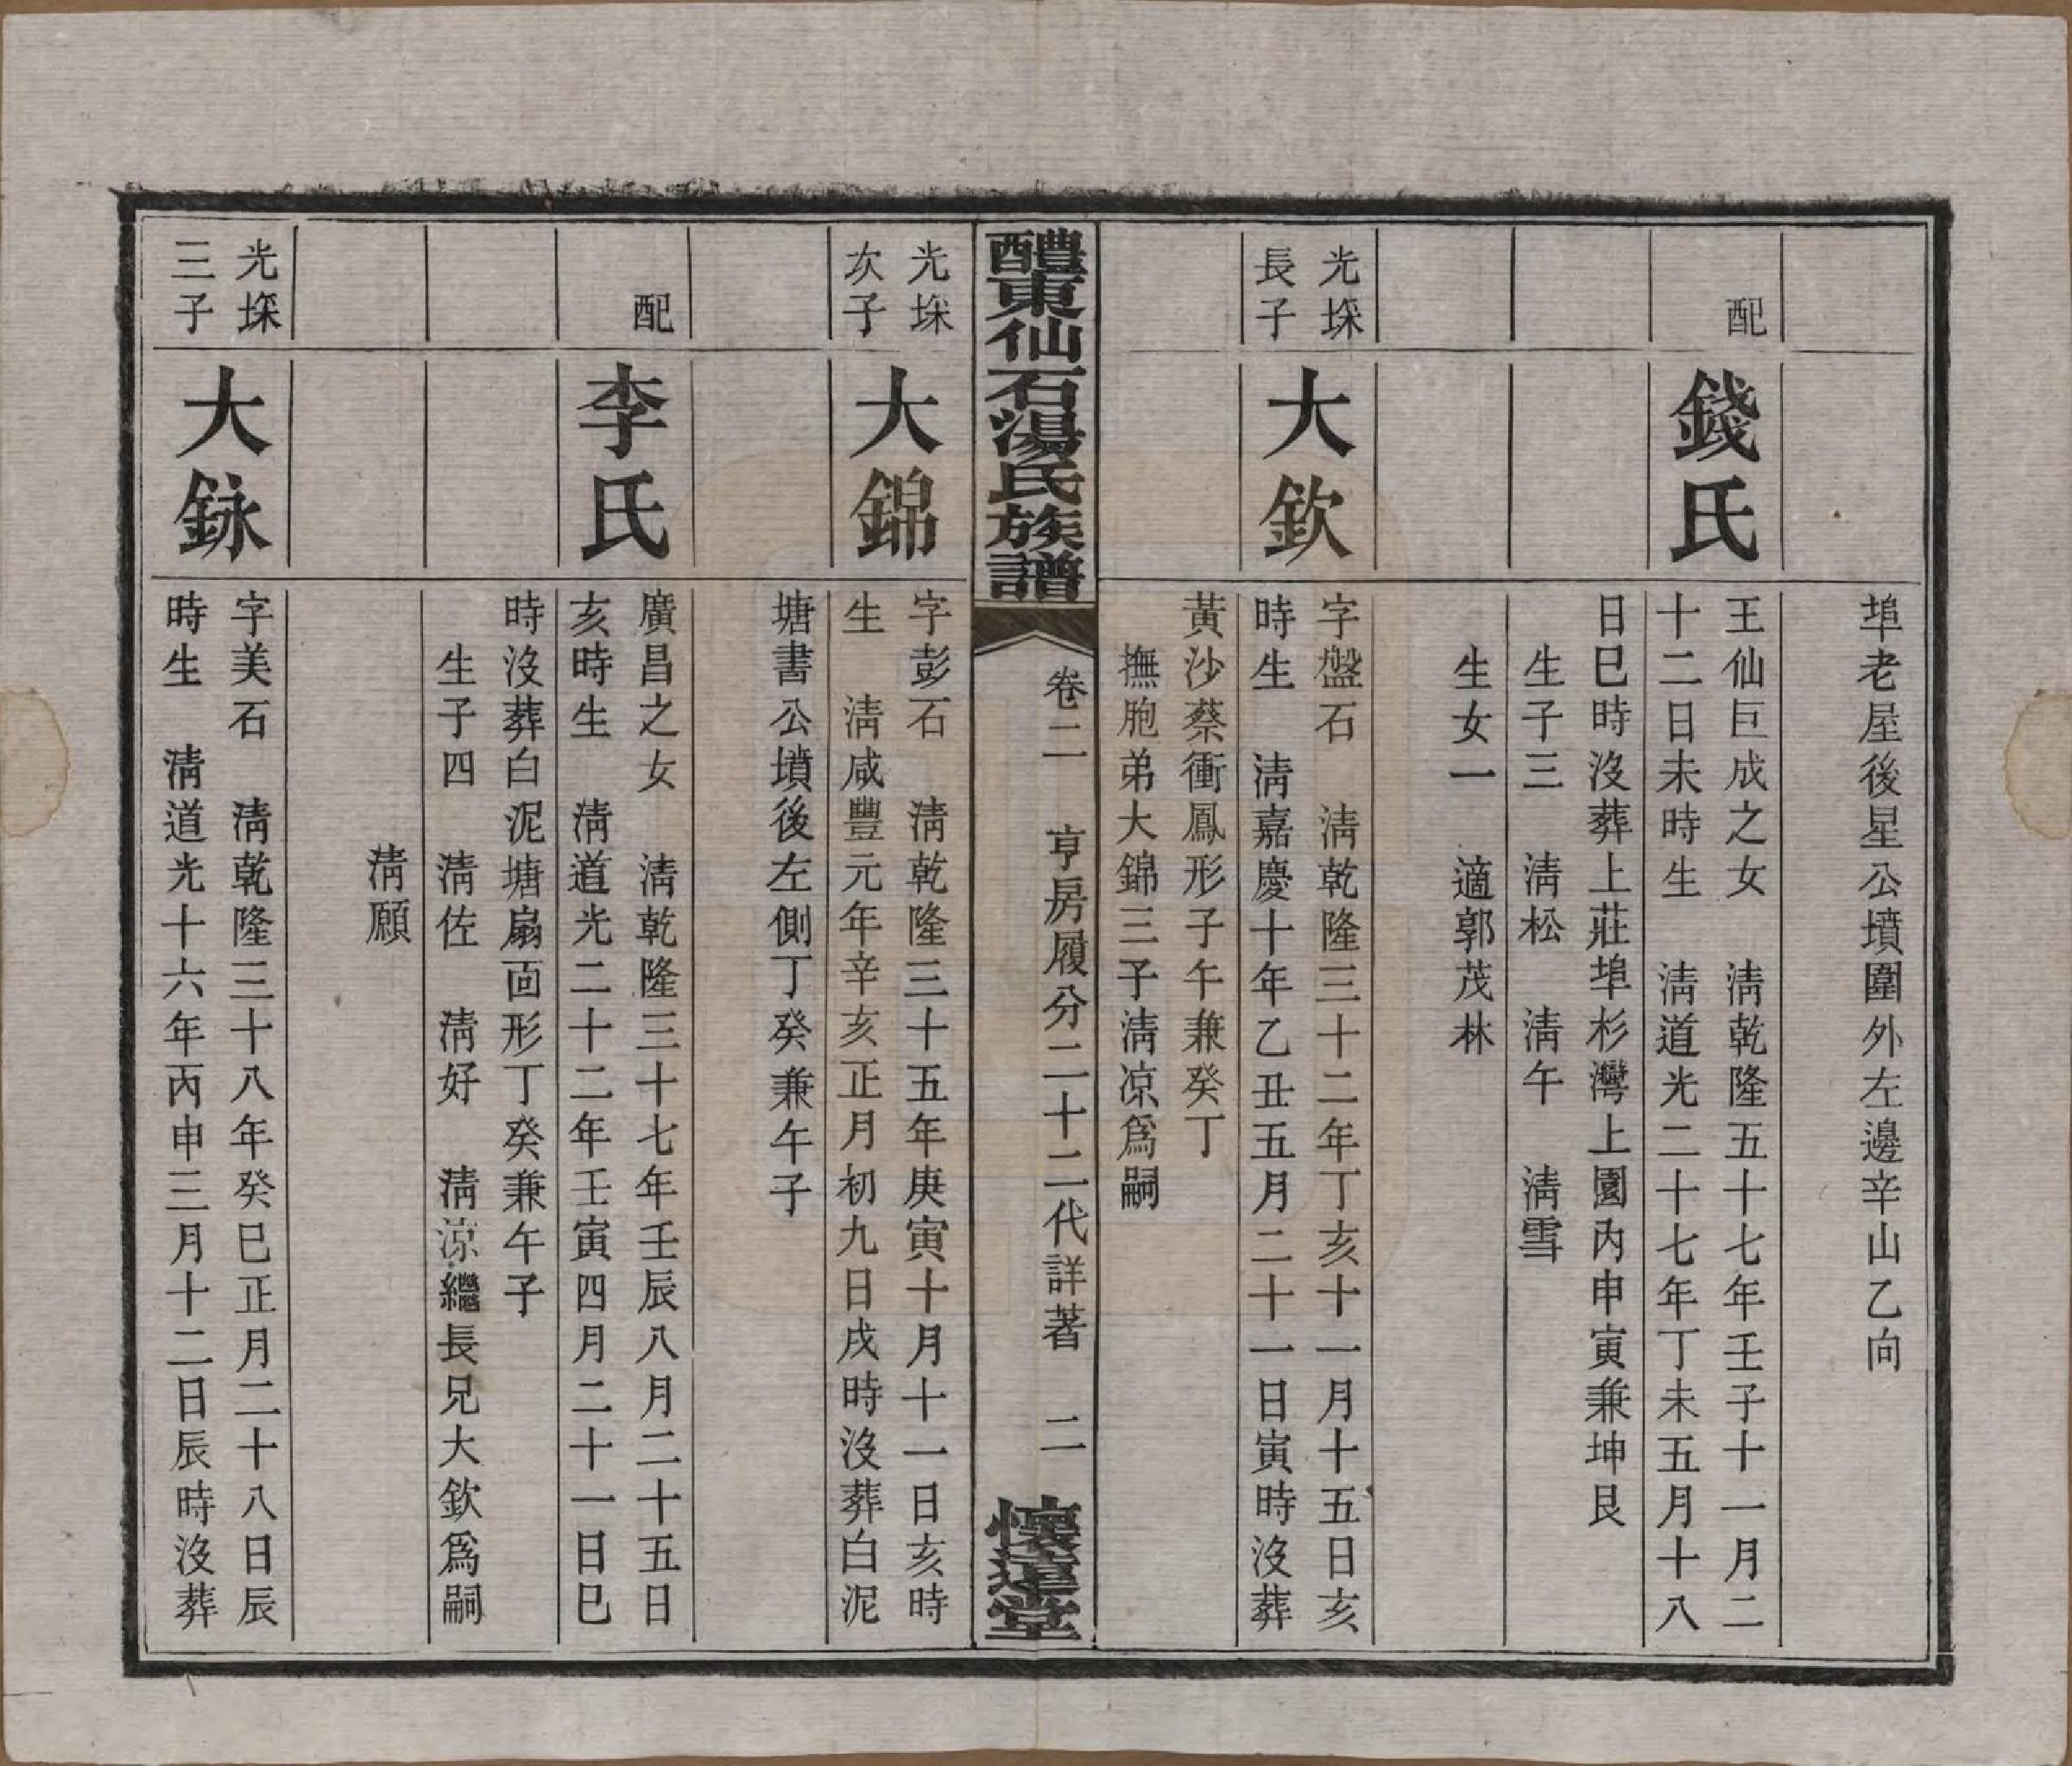 埠老屋後星公墳圍外左邊辛山乙向
配
錢氏
王仙巨成之女　淸乾隆五十七年壬子十一月二
十二日未時生　淸道光二十七年丁未五月十八
日巳時沒葬上莊埠杉灣上園內申寅兼坤艮
生子三　淸松　淸午　淸雪
生女一　適郭茂林
光埰
長子
大欽
字盤石　淸乾隆三十二年丁亥十一月十五日亥
時生　淸嘉慶十年乙丑五月二十一日寅時沒葬
黃沙蔡衝鳳形子午兼癸丁
撫胞弟大錦三子淸凉爲嗣
醴東仙石湯氏族譜
卷二　亨房履分二十二代詳著　二
懷遠堂
光埰
次子
大錦
字彭石　淸乾隆三十五年庚寅十月十一日亥時
生　淸咸豐元年辛亥正月初九日戌時沒葬白泥
塘書公墳後左側丁癸兼午子
配
李氏
廣昌之女　淸乾隆三十七年壬辰八月二十五日
亥時生　淸道光二十二年壬寅四月二十一日巳
時沒葬白泥塘扇面形丁癸兼午子
生子四　淸佐　淸好　淸凉繼長兄大欽爲嗣
淸願
光埰
三子
大銾
字美石　淸乾隆三十八年癸巳正月二十八日辰
時生　淸道光十六年丙申三月十二日辰時沒葬